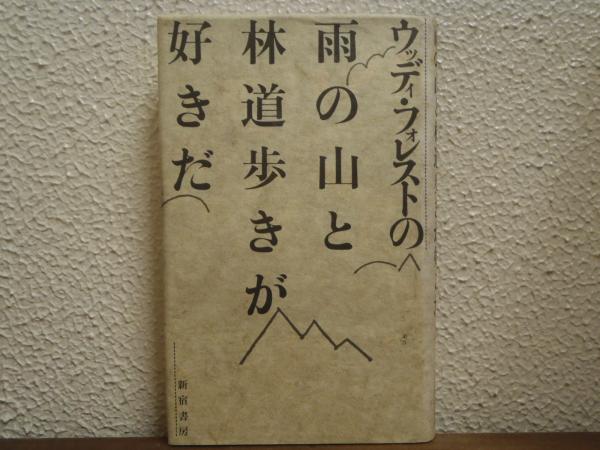 ウッディ・フォレストの
雨の山と
林道歩きが
好きだ
新宿書房